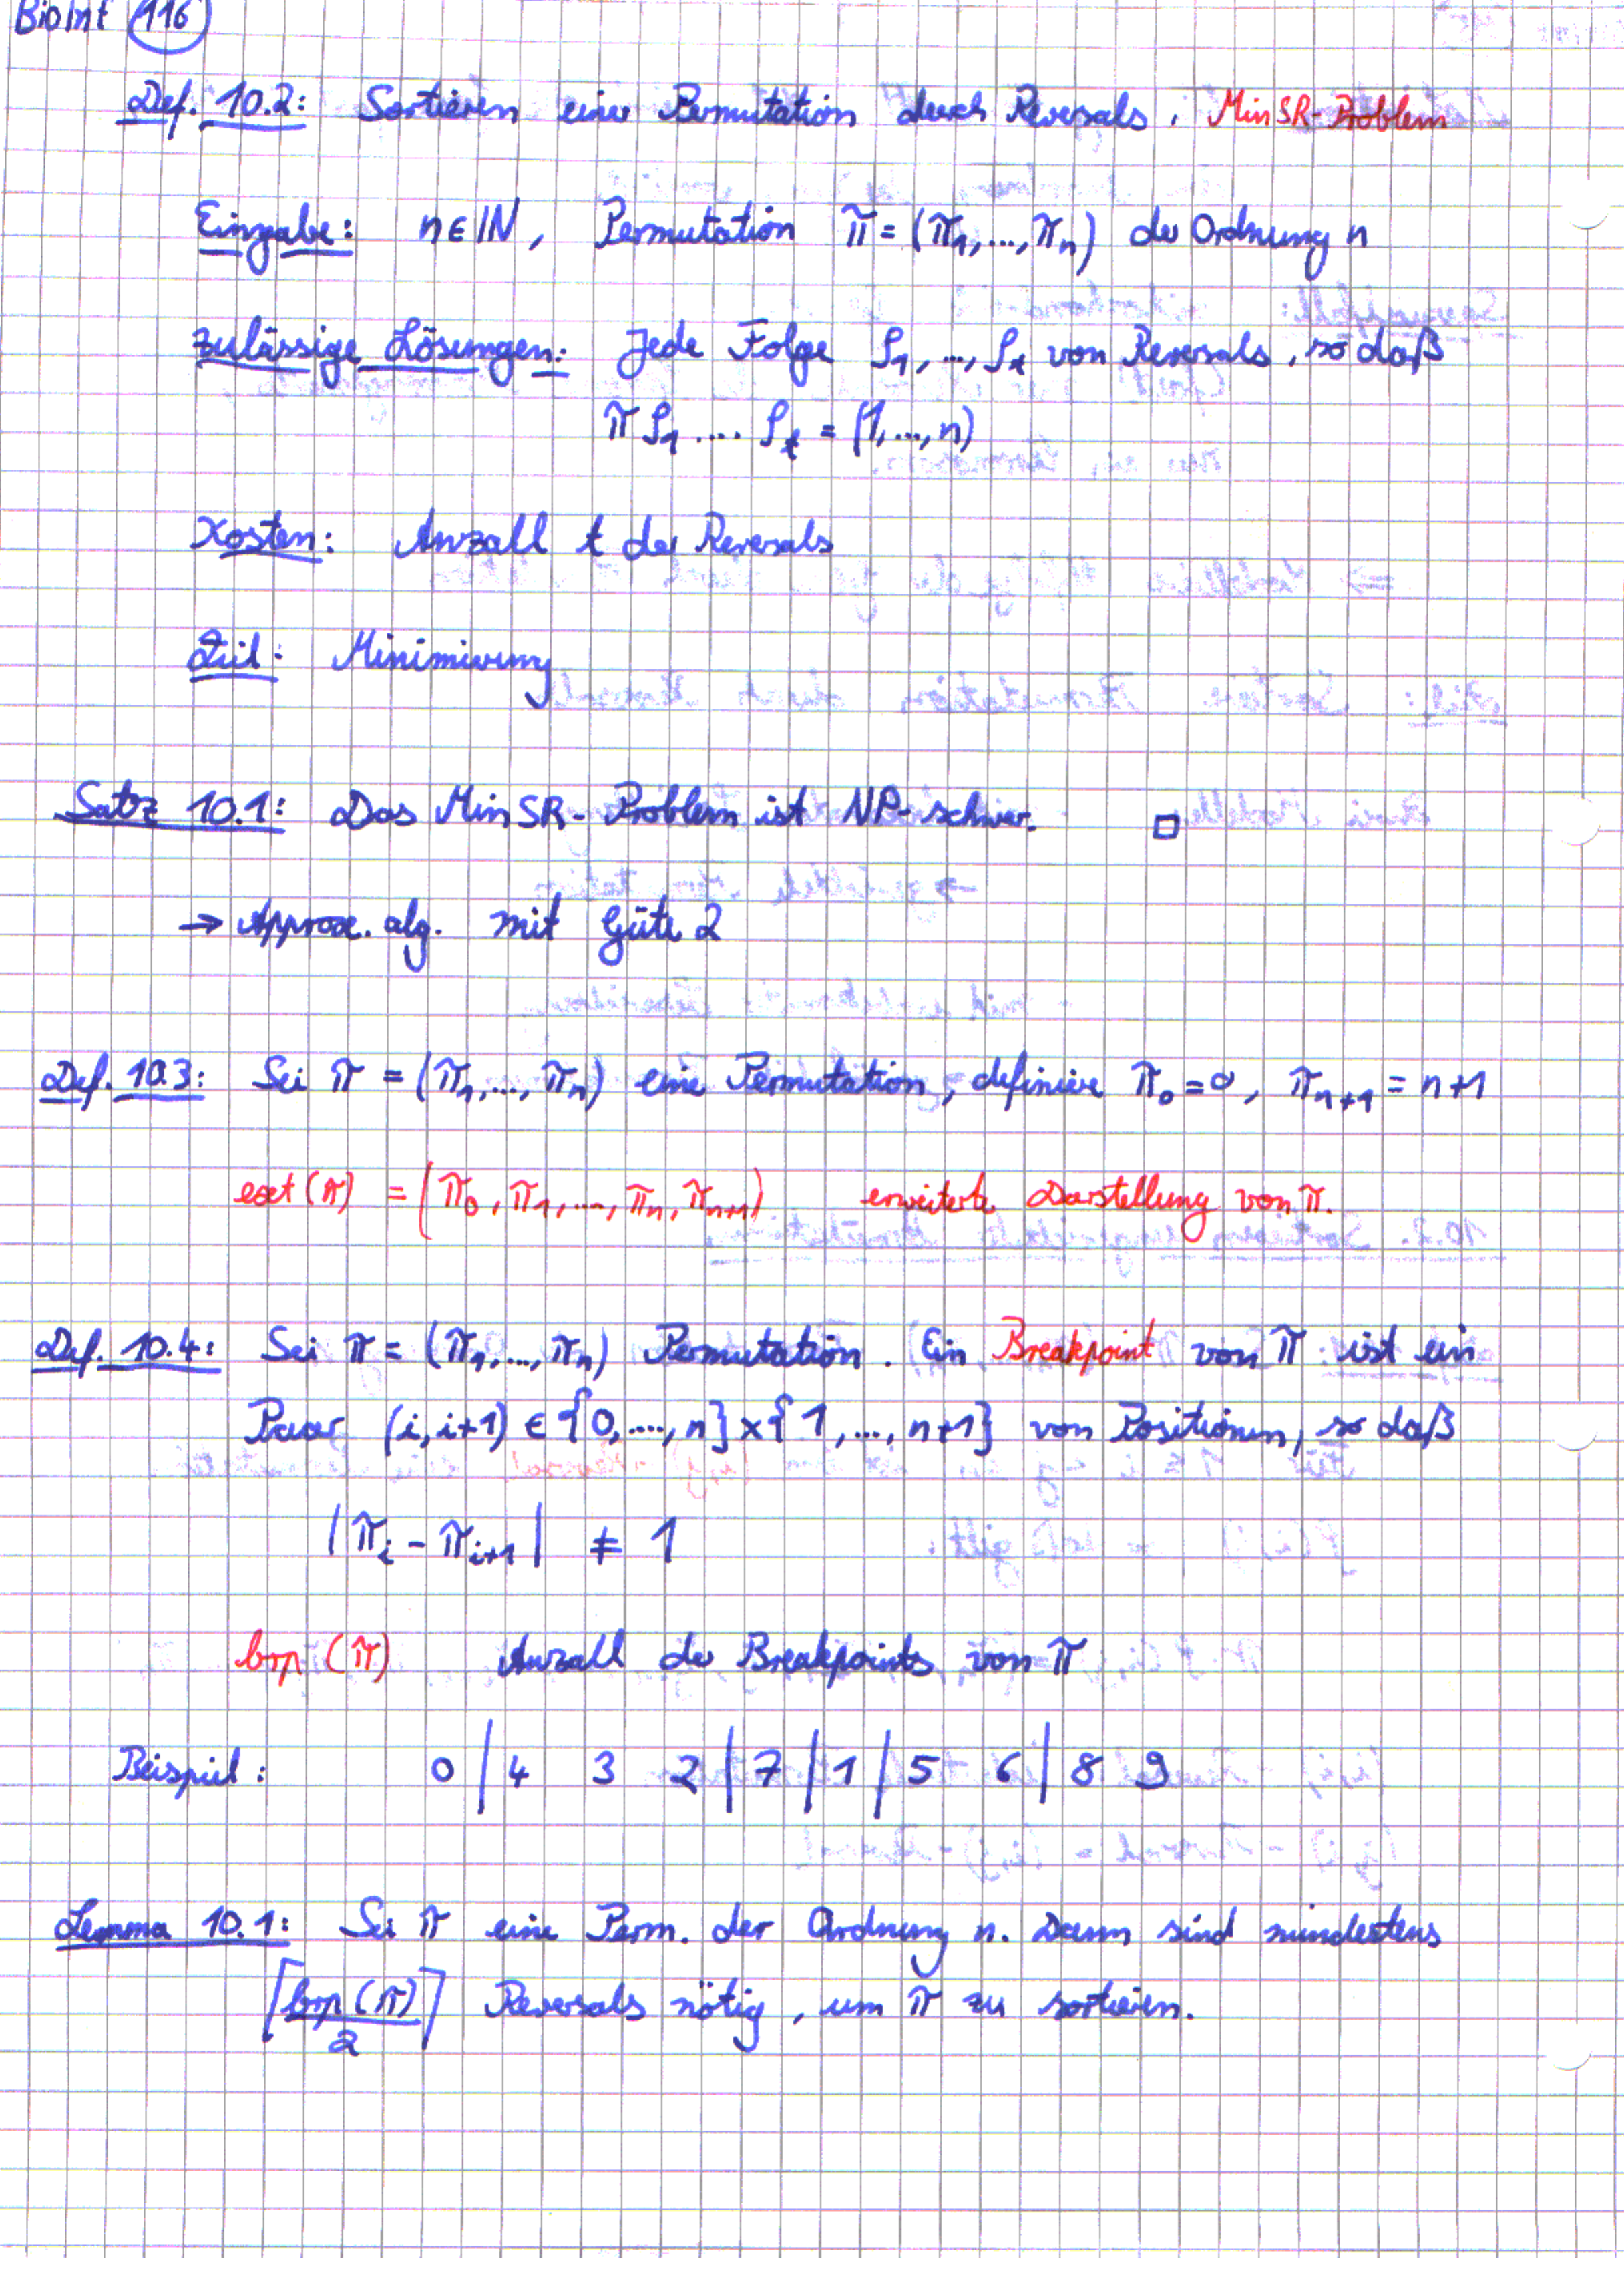 BioInf 116
Def. 10.2: Sortieren einer Permutation durch Reversals, MinSR-Problem
Eingabe: n ∈ ℕ, Permutation π = (π₁, ..., πₙ) der Ordnung n
Zulässige Lösungen: Jede Folge ρ₁, ..., ρₜ von Reversals, so daß
π ρ₁ .... ρₜ = (1, ..., n)
Kosten: Anzahl t der Reversals
Ziel: Minimierung
Satz 10.1: Das MinSR-Problem ist NP-schwer. □
→ Approx. alg. mit Güte 2
Def. 10.3: Sei π = (π₁, ..., πₙ) eine Permutation, definiere π₀ = 0, πₙ₊₁ = n+1
ext(π) = (π₀, π₁, ..., πₙ, πₙ₊₁) erweiterte Darstellung von π.
Def. 10.4: Sei π = (π₁, ..., πₙ) Permutation. Ein Breakpoint von π ist ein
Paar (i, i+1) ∈ {0, ..., n} × {1, ..., n+1} von Positionen, so daß
|πᵢ - πᵢ₊₁| ≠ 1
brp (π) Anzahl der Breakpoints von π
Beispiel: 0 | 4 3 2 | 7 | 1 | 5 6 | 8 9
Lemma 10.1: Sei π eine Perm. der Ordnung n. Dann sind mindestens
⌈brp(π)/2⌉ Reversals nötig, um π zu sortieren.